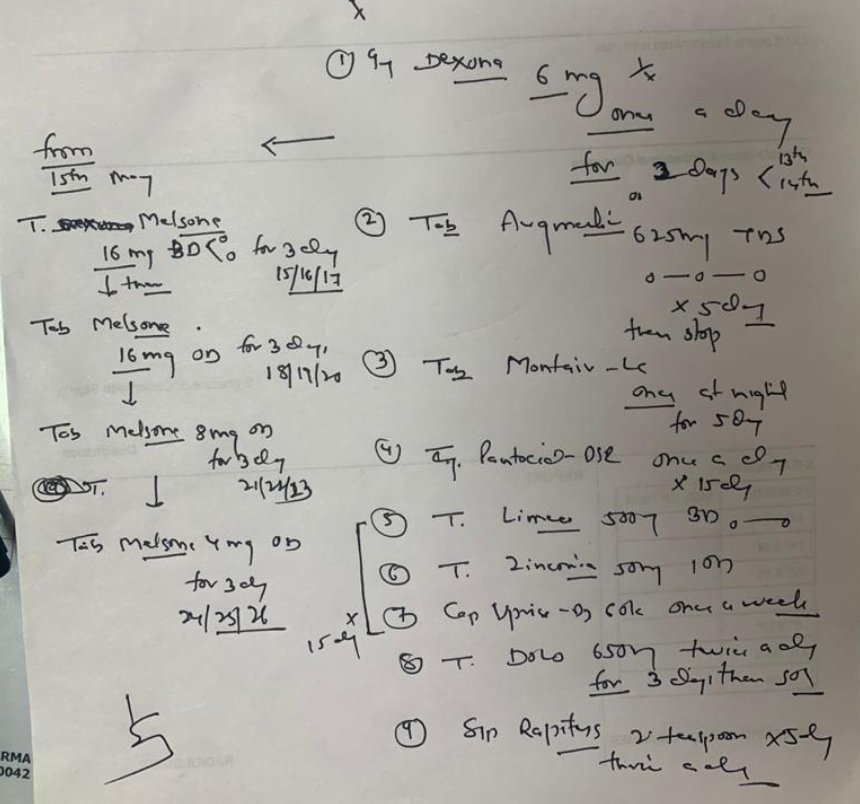 ① Inj Dexona 6 mg
once a day
for 2 days < 13th
14th
from
15th May
T. Melsone
16 mg BD for 3 dly
15/16/17
↓ then
Tab Melsone
16 mg OD for 3 dly,
18/19/20
↓
Tab Melsone 8mg OD
for 3 dly
21/22/23
T. ↓
Tab Melsone 4 mg OD
for 3 dly
24/25/26
② Tab Augmentin
625mg TDS
o — o — o
x 5 dly
then stop
③ Tab Montair - LC
once at night
for 5 dly
④ Pantocid - DSR once a dly
x 15 dly
⑤ T. Limcee 500mg BD o — o
⑥ T. Zinconia 50mg 1 OD
⑦ Cap Uprise - D3 60k once a week
x 15 dly
⑧ T. Dolo 650mg twice a dly
for 3 dly, then SOS
⑨ Syp Rapitus 2 teaspoon x 5 dly
twice a dly
RMA
0042